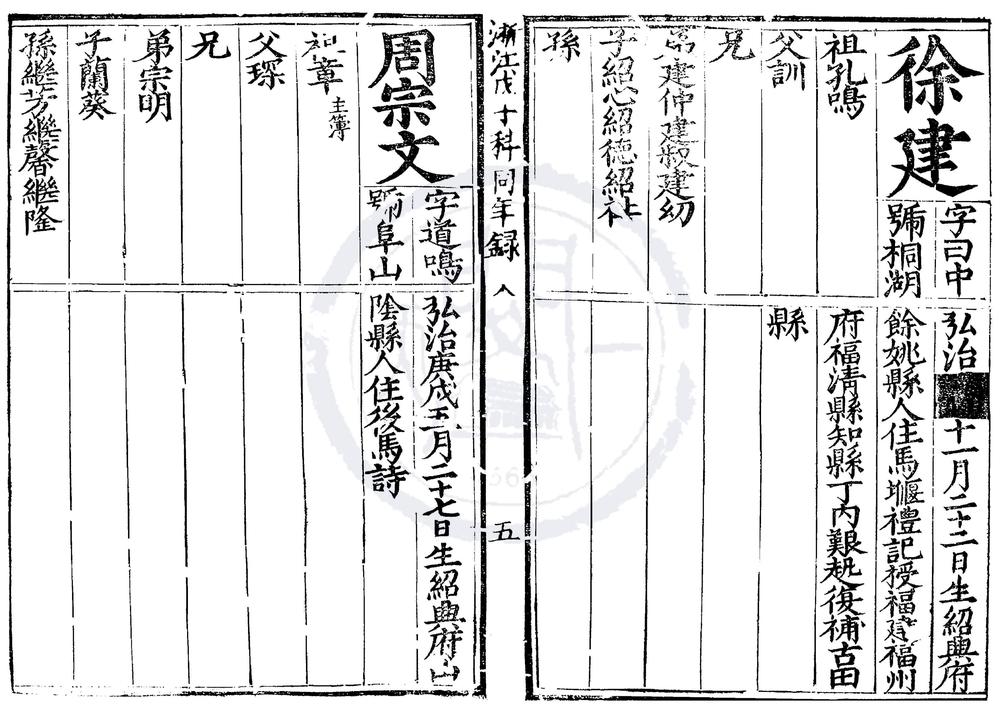 徐建
字曰中
號桐湖
弘治
十一月二十二日生紹興府
餘姚縣人住馬堰禮記授福建福州
府福淸縣知縣丁內艱起復補古田
縣
祖孔鳴
父訓
兄
弟建仲建叔建幼
子紹芯紹德紹祉
孫
浙江戊子科同年錄
五
周宗文
字道鳴
號阜山
弘治庚戌五月二十七日生紹興府山
陰縣人住後馬詩
祖章主簿
父琛
兄
弟宗明
子蘭葵
孫繼芳繼馨繼隆